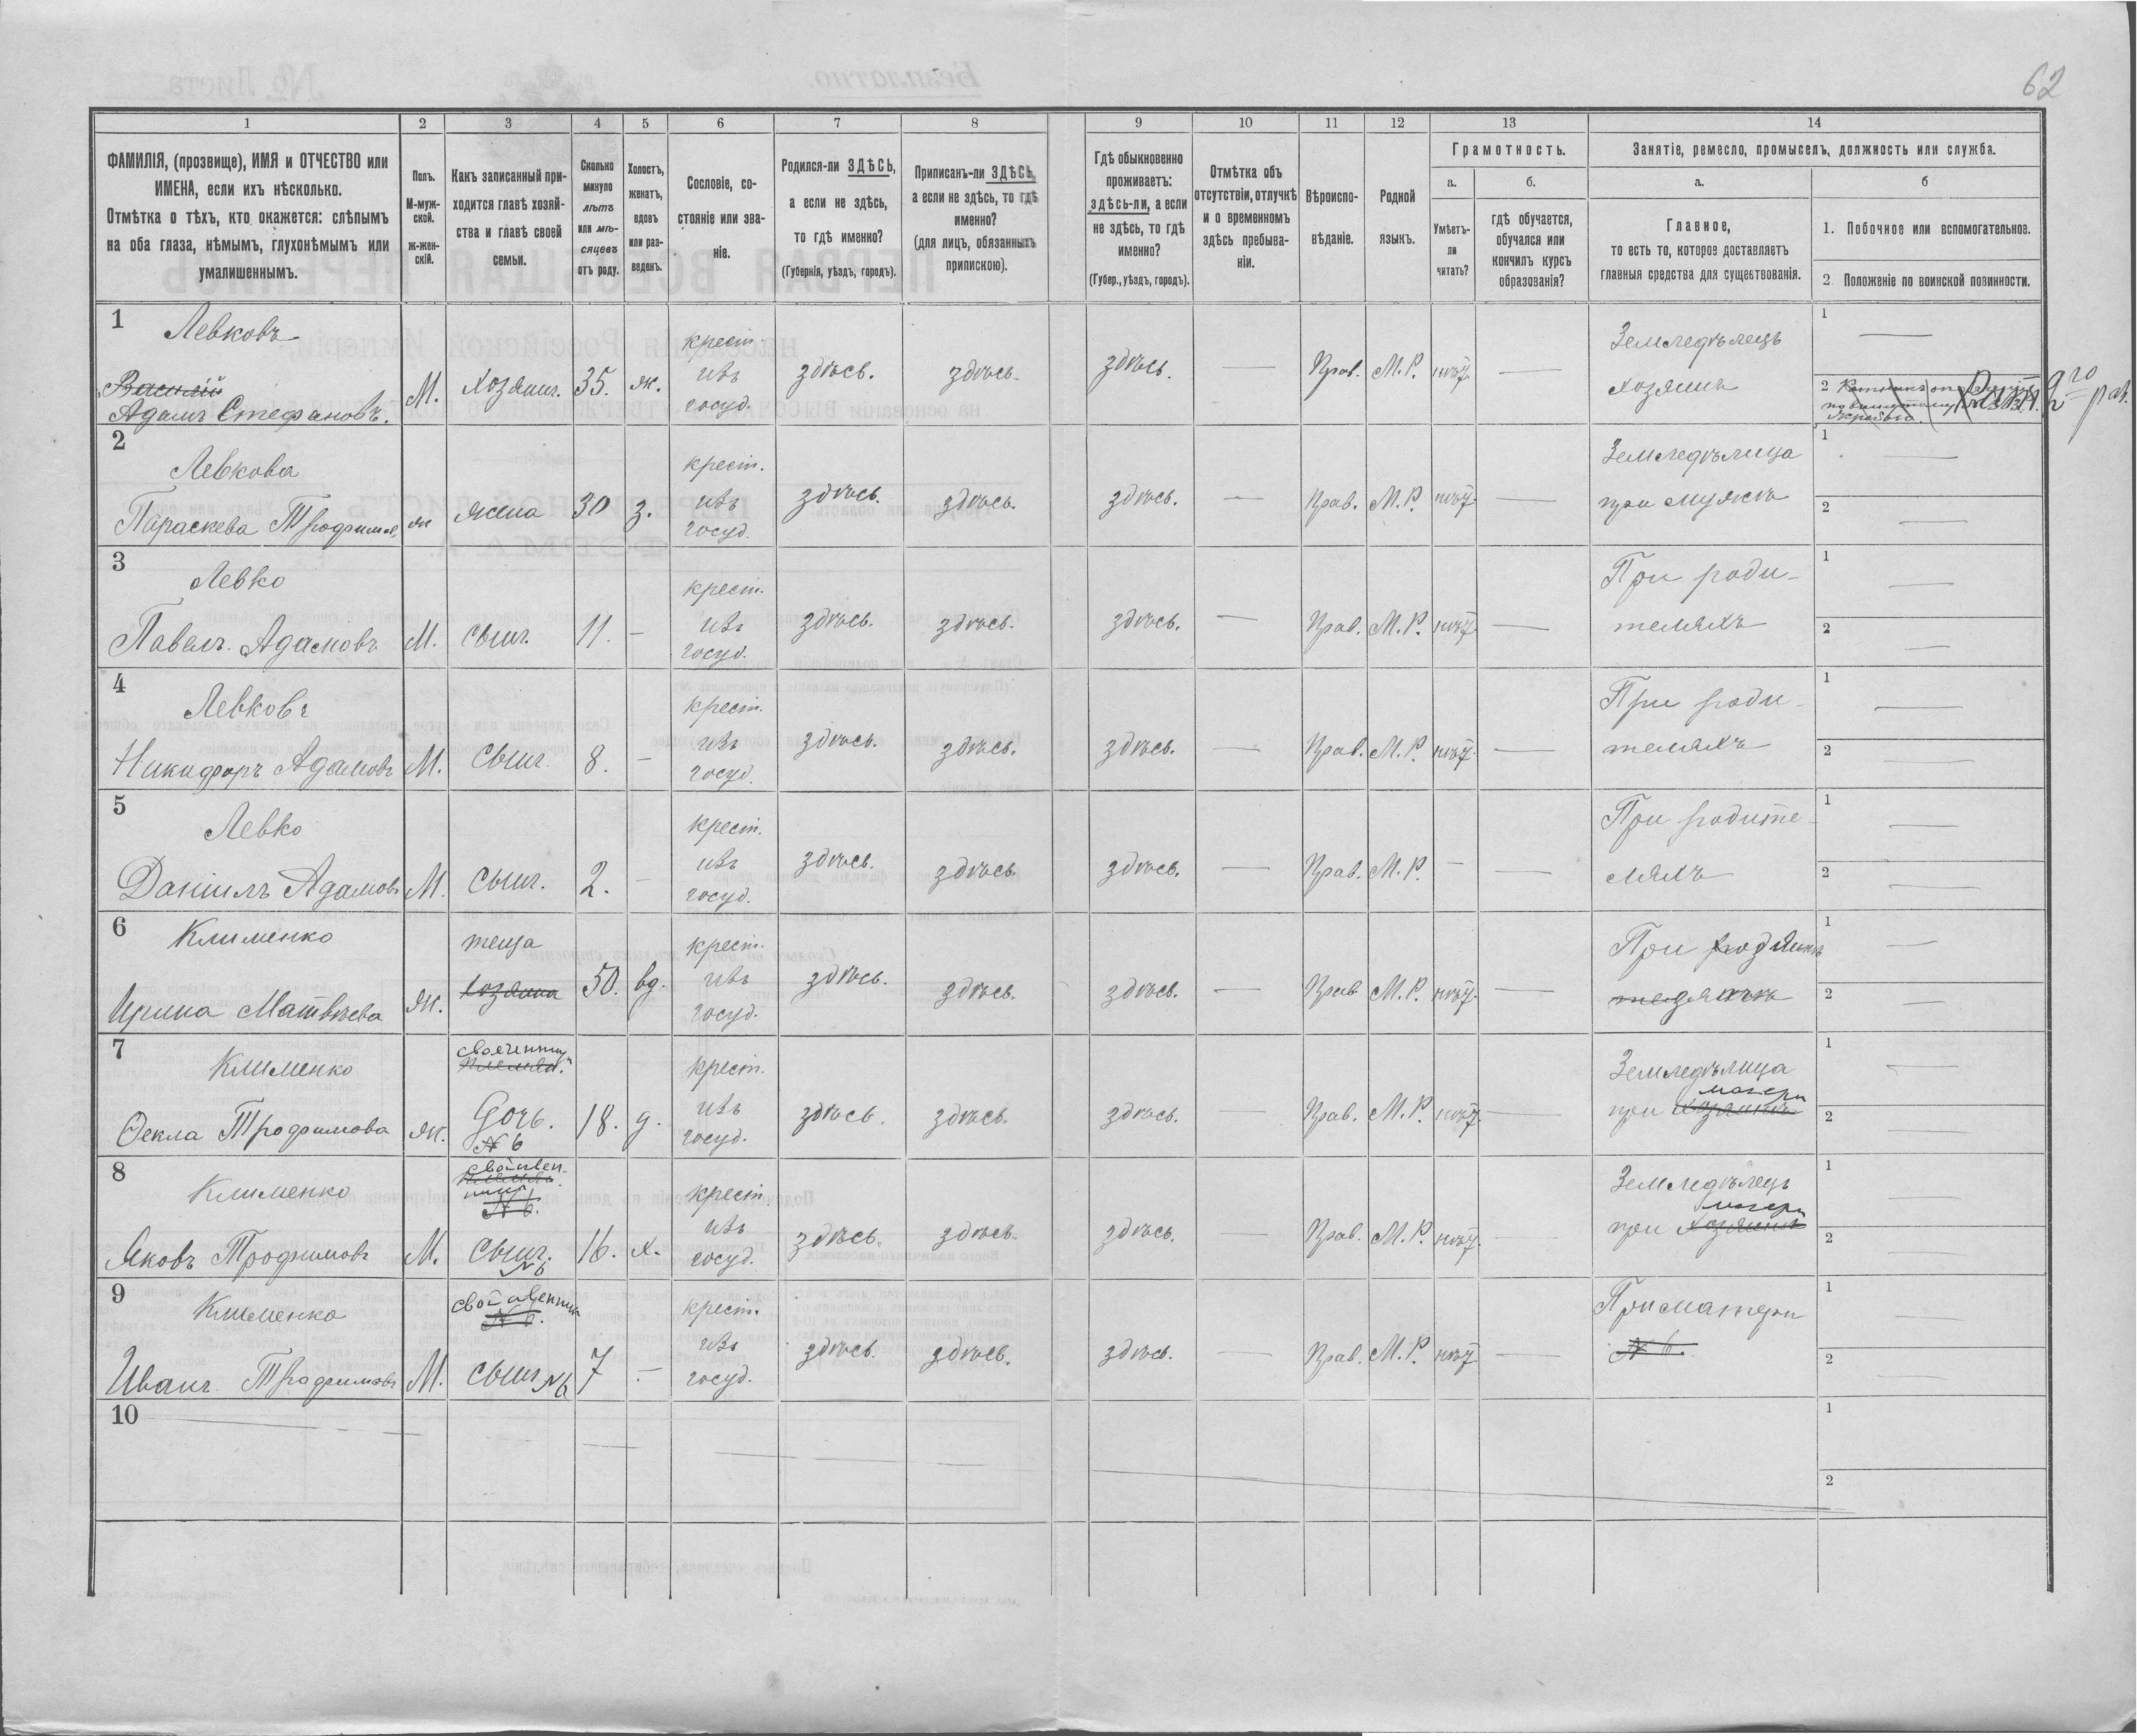 62
1 2 3 4 5 6 7 8 9 10 11 12 13 14
ФАМИЛІЯ, (прозвище), ИМЯ и ОТЧЕСТВО или
ИМЕНА, если ихъ нѣсколько.
Отмѣтка о тѣхъ, кто окажется: слѣпымъ
на оба глаза, нѣмымъ, глухонѣмымъ или
умалишеннымъ.
Полъ.
М-муж-
ской.
ж-жен-
скій.
Какъ записанный при-
ходится главѣ хозяй-
ства и главѣ своей
семьи.
Сколько
минуло
лѣтъ
или мѣ-
сяцевъ
отъ роду.
Холостъ,
женатъ,
вдовъ
или раз-
веденъ.
Сословіе, со-
стояніе или зва-
ніе.
Родился-ли ЗДѢСЬ,
а если не здѣсь,
то гдѣ именно?
(Губернія, уѣздъ, городъ).
Приписанъ-ли ЗДѢСЬ,
а если не здѣсь, то гдѣ
именно?
(для лицъ, обязанныхъ
припискою).
Гдѣ обыкновенно
проживаетъ:
здѣсь-ли, а если
не здѣсь, то гдѣ
именно?
(Губер., уѣздъ, городъ).
Отмѣтка объ
отсутствіи, отлучкѣ
и о временномъ
здѣсь пребыва-
ніи.
Вѣроиспо-
вѣданіе.
Родной
языкъ.
Грамотность.
а.
Умѣетъ-
ли
читать?
б.
гдѣ обучается,
обучался или
кончилъ курсъ
образованія?
Занятіе, ремесло, промыселъ, должность или служба.
а.
Главное,
то есть то, которое доставляетъ
главныя средства для существованія.
б
1. Побочное или вспомогательное.
2. Положеніе по воинской повинности.
1
Левковъ
Василій
Адамъ Стефановъ.
М.
хозяинъ.
35.
ж.
крест.
изъ
госуд.
здѣсь.
здѣсь.
здѣсь.
—
Прав.
М.Р.
нѣт
—
Земледѣлецъ
хозяинъ
1 —
2
Рат. 2го раз.
2
Левкова
Параскева Трофимов.
ж
жена
30
з.
крест.
изъ
госуд.
здѣсь.
здѣсь.
здѣсь.
—
Прав.
М.Р.
нѣт
—
Земледѣлица
при мужѣ
1 —
2 —
3
Левко
Павелъ Адамовъ
М.
сынъ.
11.
—
крест.
изъ
госуд.
здѣсь.
здѣсь.
здѣсь.
—
Прав.
М.Р.
нѣт
—
При роди-
теляхъ
1 —
2 —
4
Левковъ
Никифоръ Адамовъ
М.
Сынъ
8.
—
крест.
изъ
госуд.
здѣсь.
здѣсь.
здѣсь.
—
Прав.
М.Р.
нѣт
—
При роди-
теляхъ
1 —
2 —
5
Левко
Даніилъ Адамовъ
М.
Сынъ.
2.
—
крест.
изъ
госуд.
здѣсь.
здѣсь
здѣсь.
—
Прав.
М.Р.
—
—
При родите-
ляхъ
1 —
2 —
6
Клименко
Ирина Матвѣева
ж.
теща
хозяина
50.
вд.
крест.
изъ
госуд.
здѣсь.
здѣсь.
здѣсь.
—
Прав.
М.Р.
нѣт
—
При
1 —
2 —
7
Клименко
Ѳекла Трофимова
ж.
свояченица
Дочь.
№ 6
18.
д.
крест.
изъ
госуд.
здѣсь.
здѣсь.
здѣсь.
—
Прав.
М.Р.
нѣт
—
Земледѣлица
матери
при хозяинѣ
1 —
2 —
8
Клименко
Яковъ Трофимовъ
М.
№ 6.
Сынъ.
№ 6
16.
х.
крест.
изъ
госуд.
здѣсь.
здѣсь.
здѣсь.
—
Прав.
М.Р.
нѣт
—
Земледѣлецъ
матери
при хозяинѣ
1 —
2 —
9
Клименко
Иванъ Трофимовъ
М.
свойственник
№ 6.
сынъ № 6
7
—
крест.
изъ
госуд.
здѣсь.
здѣсь.
здѣсь.
—
Прав.
М.Р.
нѣт
—
При матери
№ 6.
1 —
2 —
10
1
2